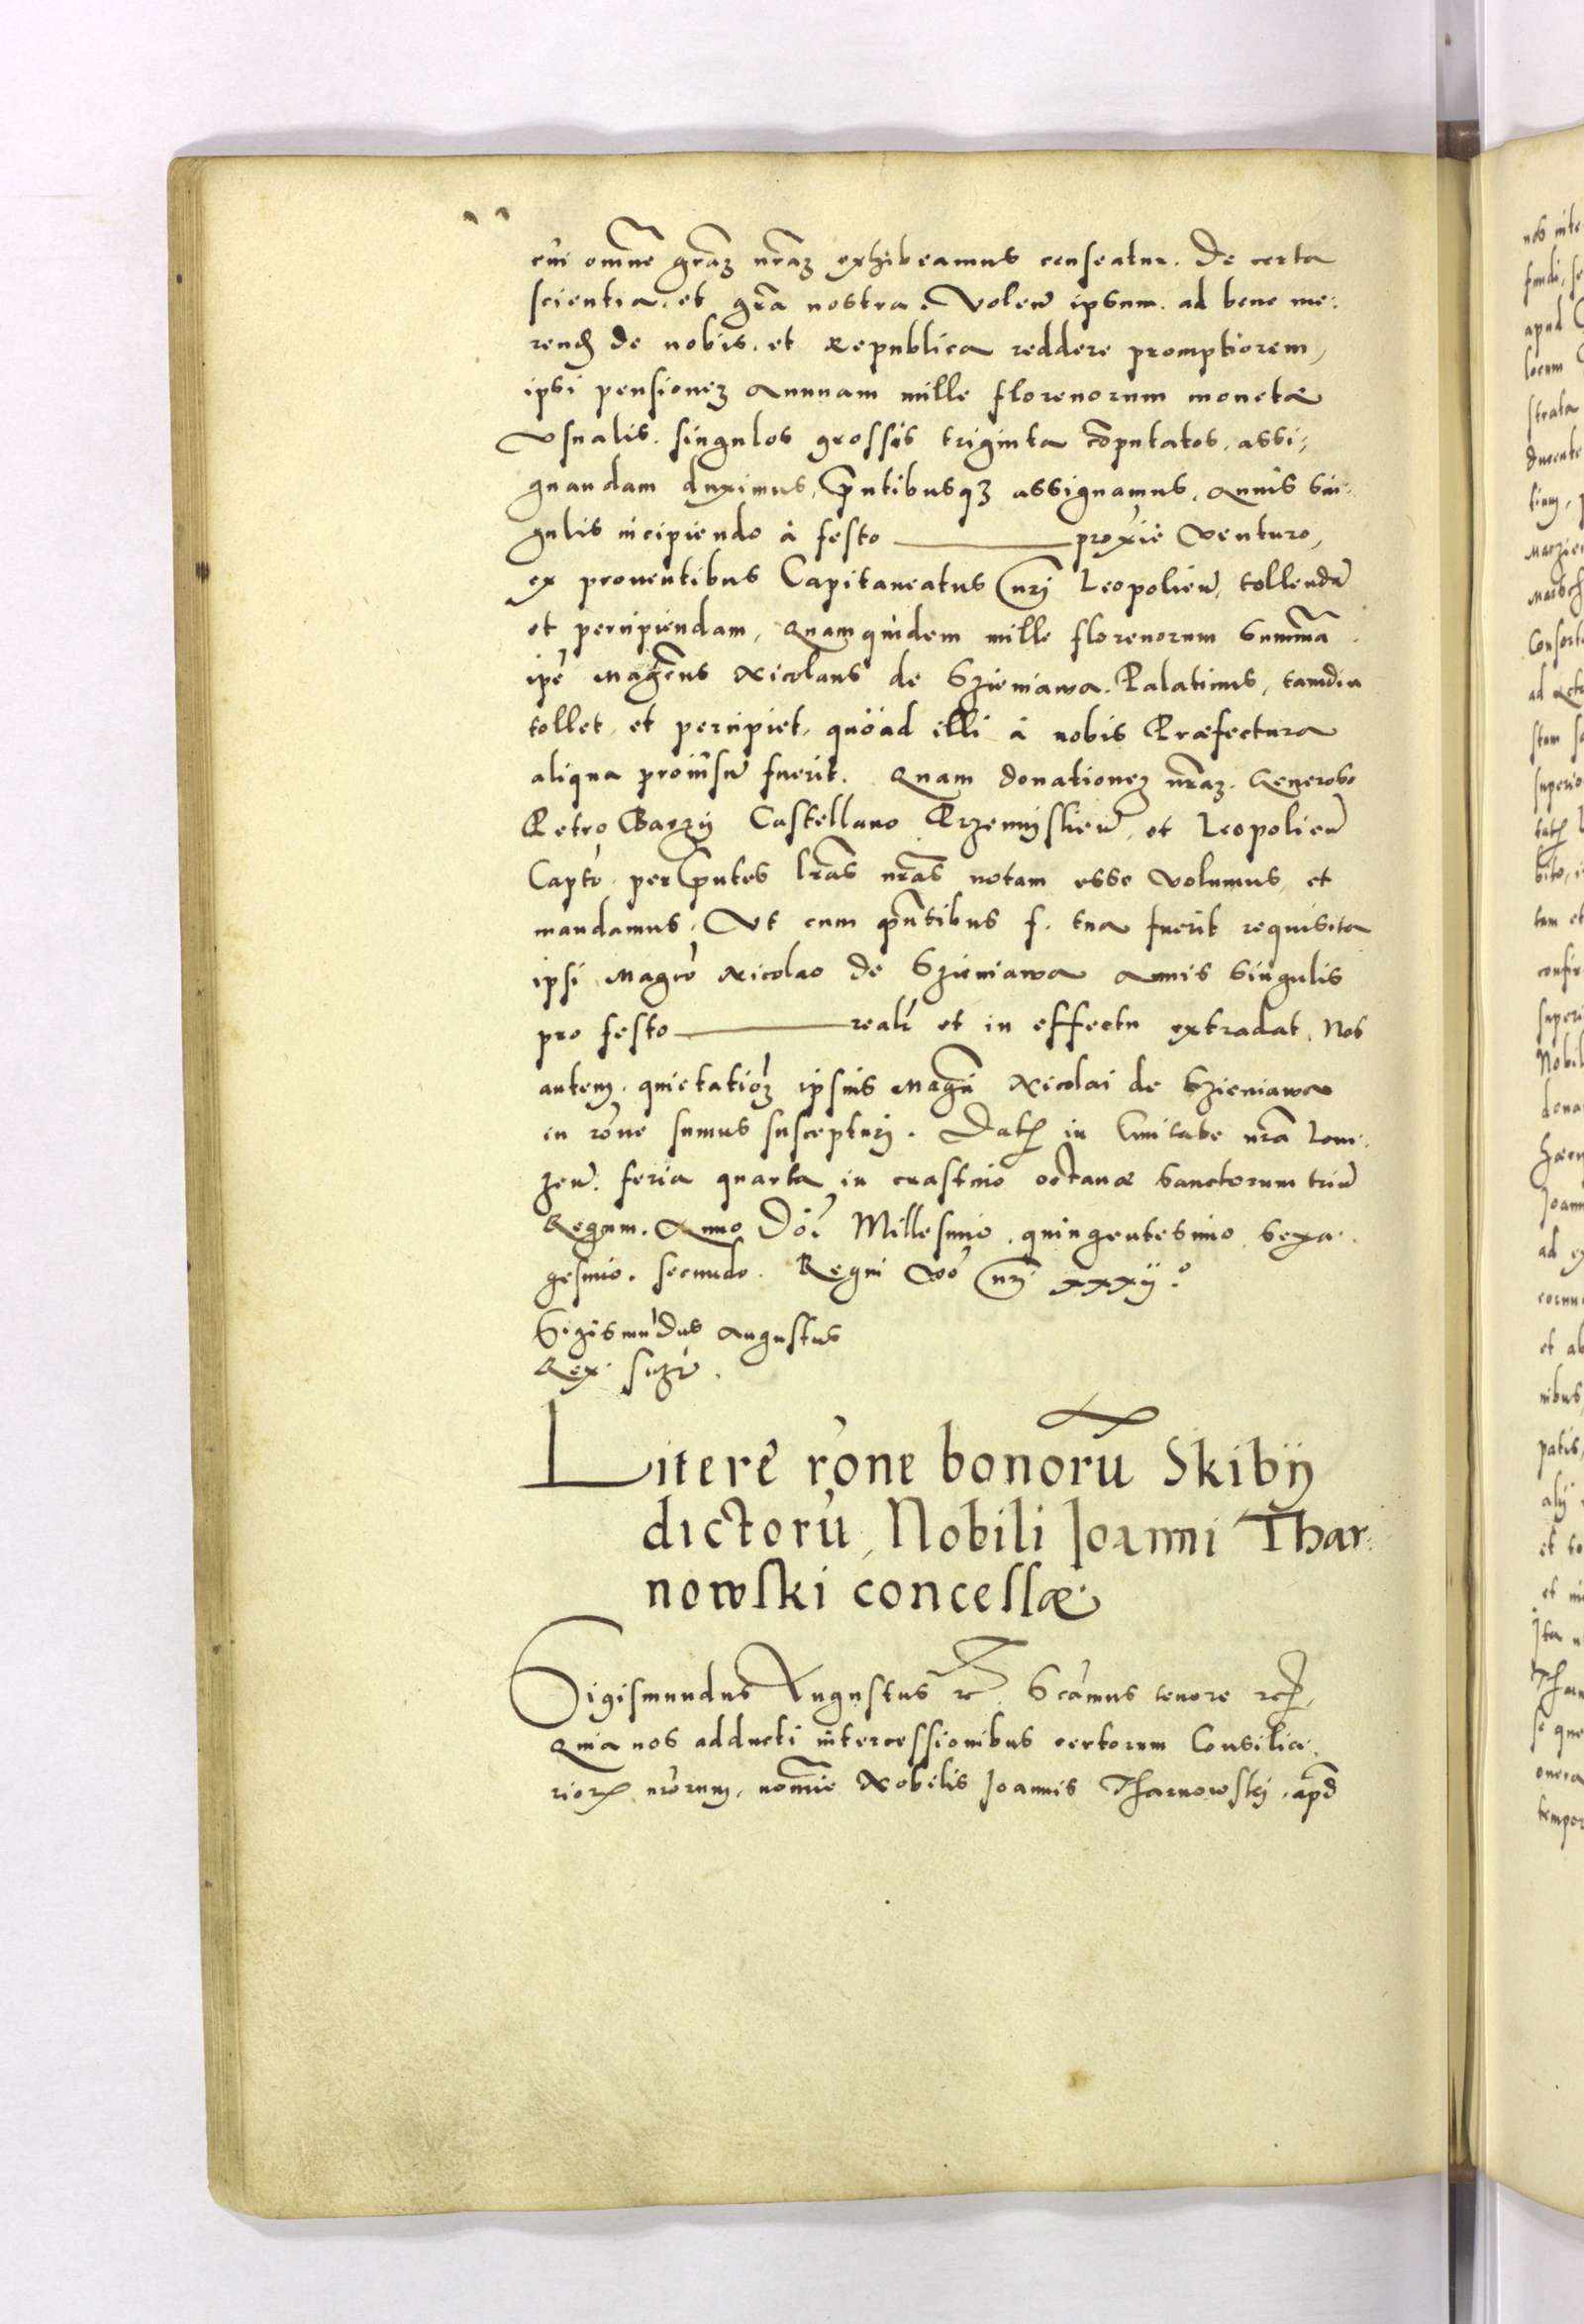 cui omnē grāȝ nrāȝ exhibeamus censeatur. De certa
scientia, et grā nostra. Volen̄ ipsum. ad bene me:
rend de nobis, et Republica reddere promptiorem,
ipsi pensioneȝ annuam mille florenorum monetæ
vsualis. singulos grossis triginta cōputatos, assi:
gnandam duximus, pn̄tibusqȝ assignamus, annis sin:
gulis incipiendo à festo ——— proxīē venturo,
ex prouentibus Capitaneatus nrī Leopolien̄, tollendā
et percipiendam, Quam quidem mille florenorum sum̄ā
ipē Magcūs Nicolaus de Szieniawa. Palatinus, tamdiu
tollet, et percipiet, quoad illi à nobis Præfectura
aliqua prouīsū fuerit. Quam donationeȝ nrāȝ. Generoso
Petro Barzÿ Castellano Przemÿslien̄, et Leopolien̄
Captō. per pn̄tes lrās nrās notam esse volumus, et
mandamus, Vt cum pn̄tibus f. tua fuerit requisita
ipsi Magcō Nicolao de Szieniawa annis singulis
pro festo ——— realr̄ et in effectu extradat, Nos
autem, quietatiōȝ ipsius Magci Nicolai de Szieniawa
in rōne sumus suscepturj. Dat in Ciuitate nrā Lom:
zen̄. feria quarta in crastino octauæ Sanctorum triū
Regum. Anno Dōī Millesimo, quingentesimo, sexa:
gesimo, secundo. Regni vō nrī xxxij°
Sigismūdus Augustus
Rex sszt.
Literē rōne bonorū Skibÿ
dictorū, Nobili Joanni Thar:
nowski concessæ
Sigismundus Augustus rc. Scāmus tenore rc,
Quia nos adducti intercessionibus certorum Consilia:
rior nrōrum, nomīe Nobilis Joannis Tharnowskj, apd